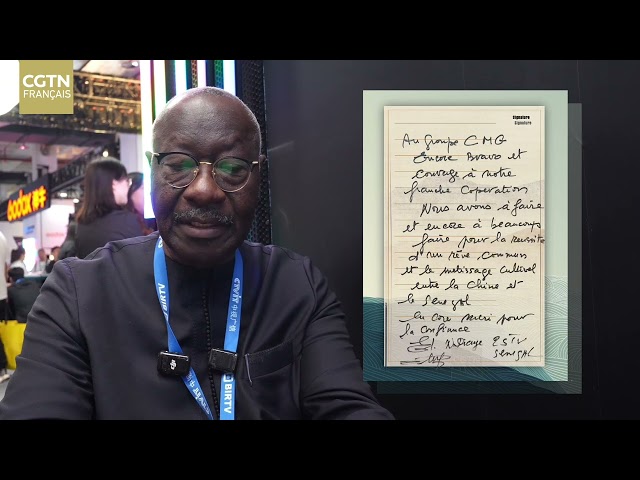 CGTN
FRANÇAIS
Godox
BIRTV
Signature
Signature
Au Groupe CMG
Encore Bravo et
courage à notre
franche Coperation
Nous avons à faire
et encore à beaucoup
faire pour la reussite
d'un rêve, commun
et le metissage culturel
entre la Chine et
le Senegal
Encore merci pour
la confiance
2STV
Senegal